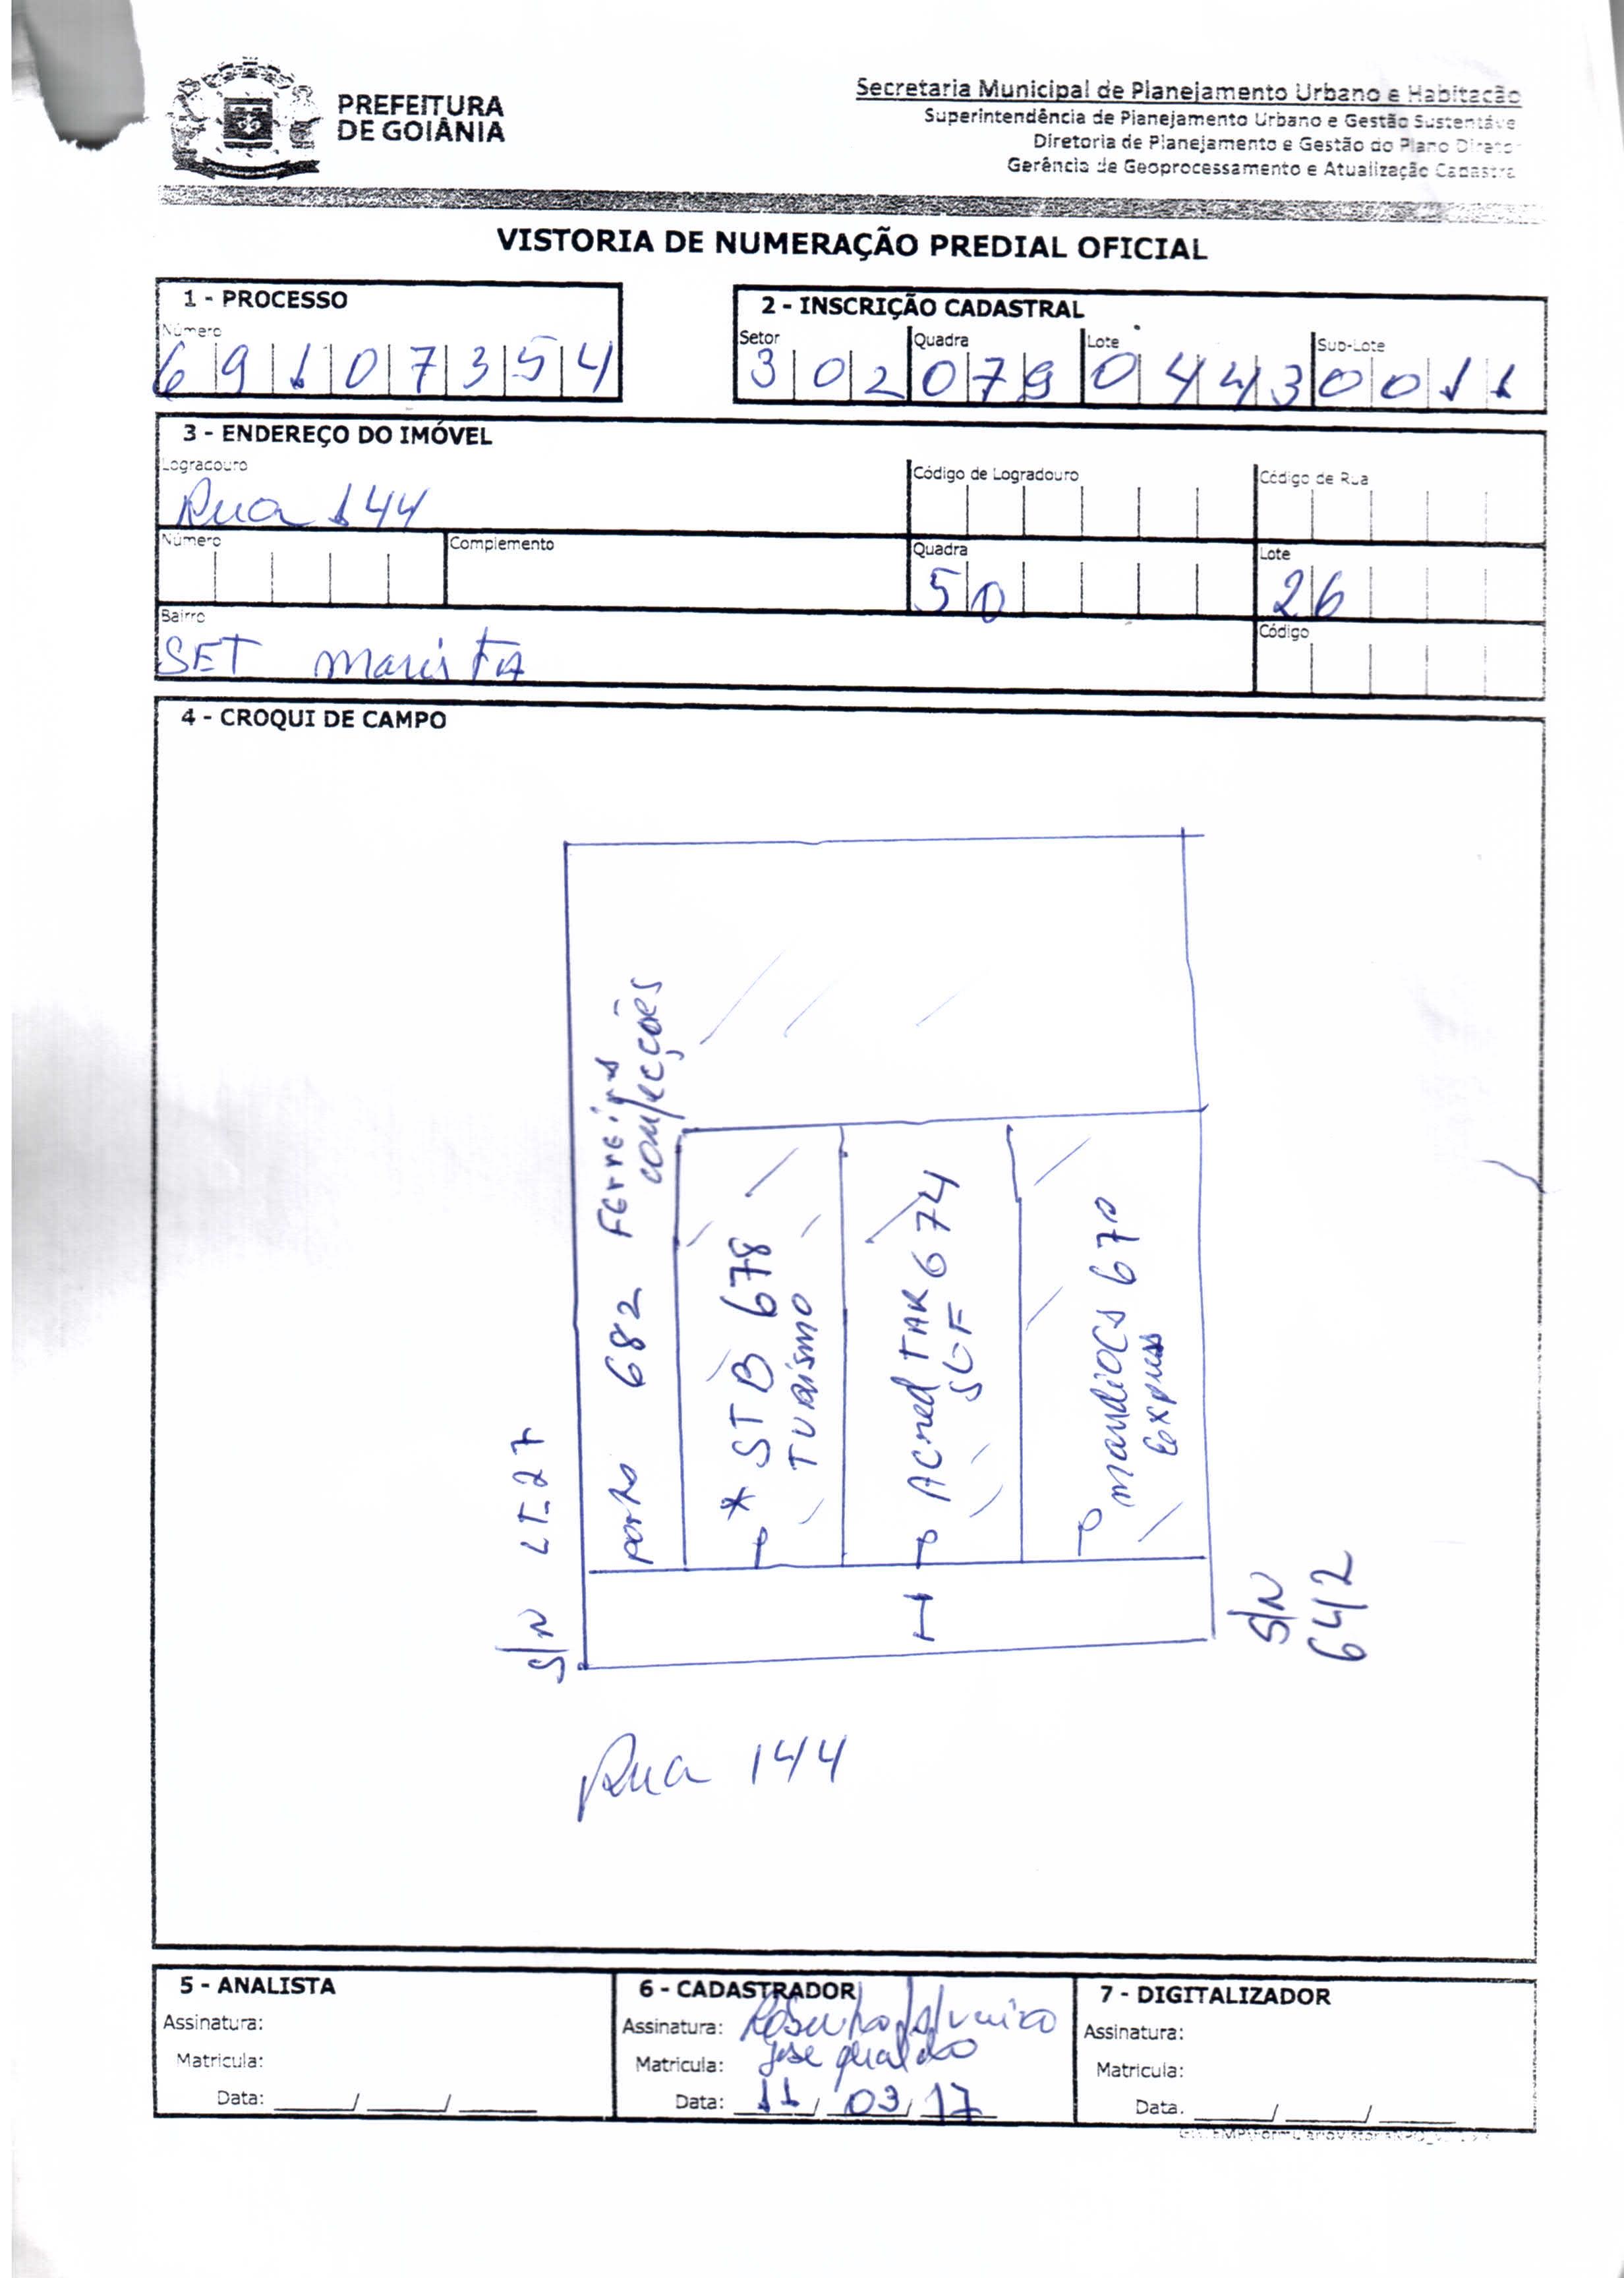 PREFEITURA
DE GOIÂNIA
Secretaria Municipal de Planejamento Urbano e Habitação
Superintendência de Planejamento Urbano e Gestão Sustentáve
Diretoria de Planejamento e Gestão do Plano Diretor
Gerência de Geoprocessamento e Atualização Cadastra
VISTORIA DE NUMERAÇÃO PREDIAL OFICIAL
1 - PROCESSO
Número
69107354
2 - INSCRIÇÃO CADASTRAL
Setor Quadra Lote Sub-Lote
302 079 0443 0011
3 - ENDEREÇO DO IMÓVEL
Logradouro Código de Logradouro Código de Rua
Rua 144
Número Complemento Quadra Lote
50 26
Bairro Código
SET Marista
4 - CROQUI DE CAMPO
S/N LT-27
porta 682 Ferreira
confecções
* STB 678
TURISMO
Acred TAR 674
SGF
mandioca 670
Express
S/N
642
Rua 144
5 - ANALISTA
Assinatura:
Matricula:
Data: ____/____/____
6 - CADASTRADOR
Assinatura:
Matricula: jose geraldo
Data: 11/03/17
7 - DIGITALIZADOR
Assinatura:
Matricula:
Data. ____/____/____